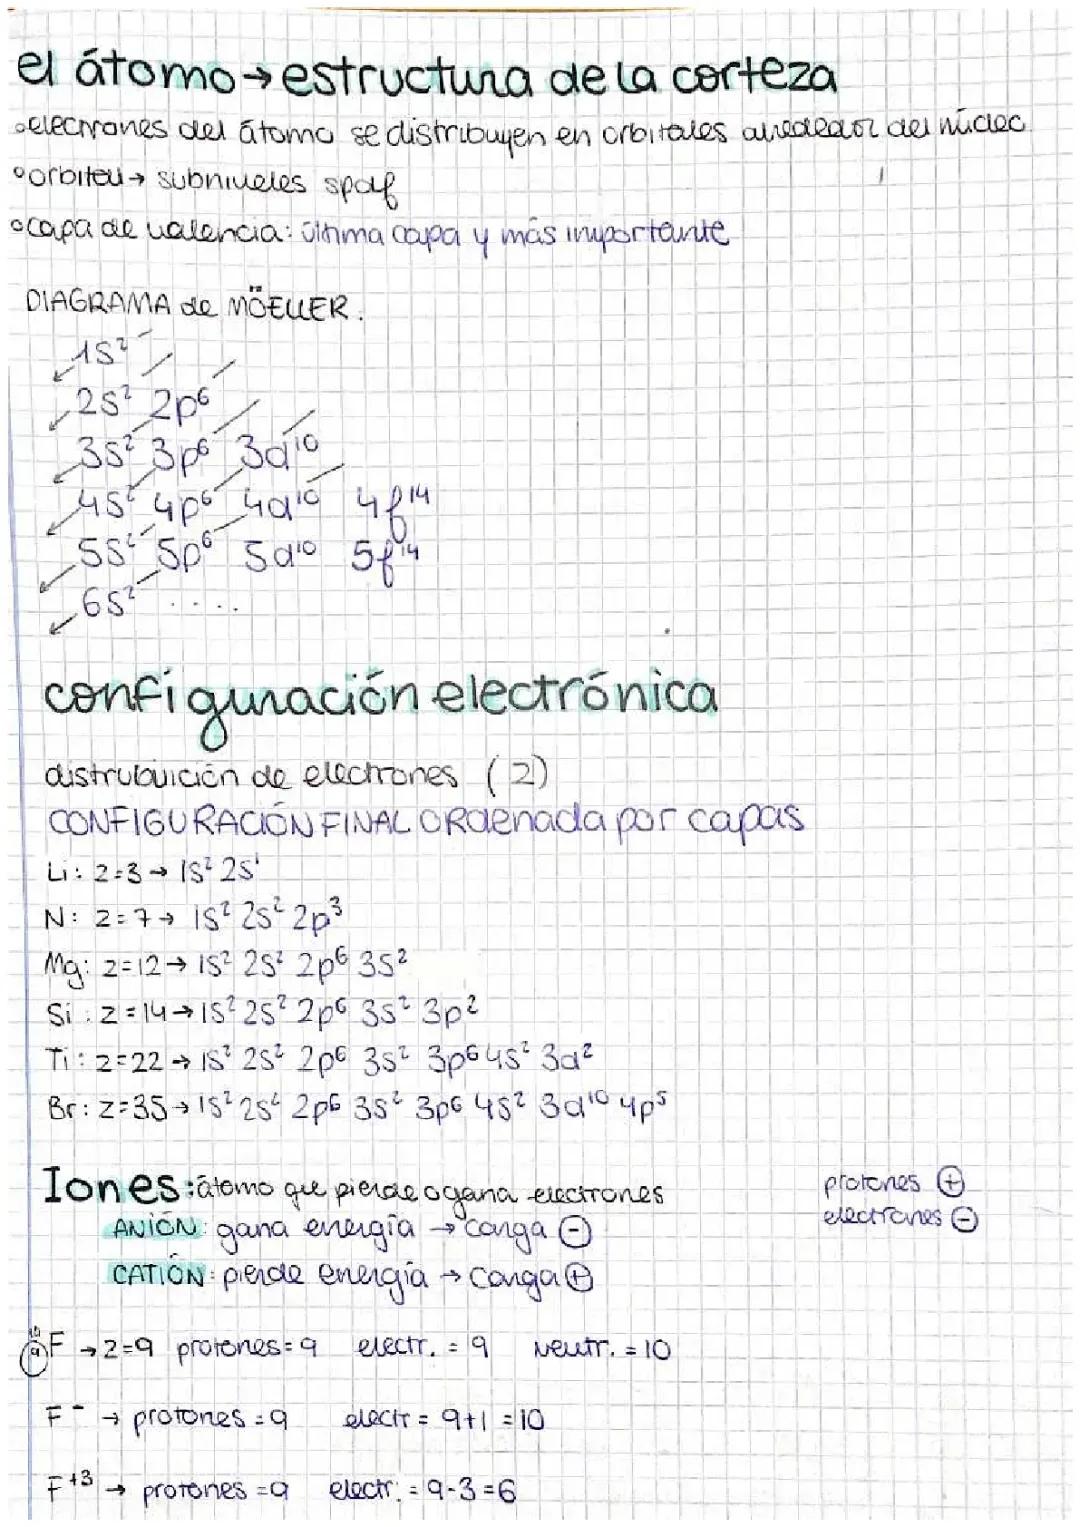 el átomo → estructura de la corteza
• electrones del átomo se distribuyen en orbitales alrededor del núcleo
• orbital → subniveles spdf
• capa de valencia: última capa y más importante
DIAGRAMA de MÖELLER.
1s²
2s² 2p⁶
3s² 3p⁶ 3d¹⁰
4s² 4p⁶ 4d¹⁰ 4f¹⁴
5s² 5p⁶ 5d¹⁰ 5f¹⁴
6s² .....
configuración electrónica
distrubuición de electrones (2)
CONFIGURACIÓN FINAL ORdenada por capas
Li: Z=3 → 1s² 2s¹
N: Z=7 → 1s² 2s² 2p³
Mg: Z=12 → 1s² 2s² 2p⁶ 3s²
Si: Z=14 → 1s² 2s² 2p⁶ 3s² 3p²
Ti: Z=22 → 1s² 2s² 2p⁶ 3s² 3p⁶ 4s² 3d²
Br: Z=35 → 1s² 2s² 2p⁶ 3s² 3p⁶ 4s² 3d¹⁰ 4p⁵
Iones: átomo que pierde o gana electrones
protones ⊕
ANIÓN: gana energía → carga ⊖
electrones ⊖
CATIÓN: pierde energía → carga ⊕
₉F → Z=9 protones=9 electr. = 9 neutr. = 10
F⁻ → protones = 9 electr = 9+1 = 10
F⁺³ → protones = 9 electr. = 9-3 = 6